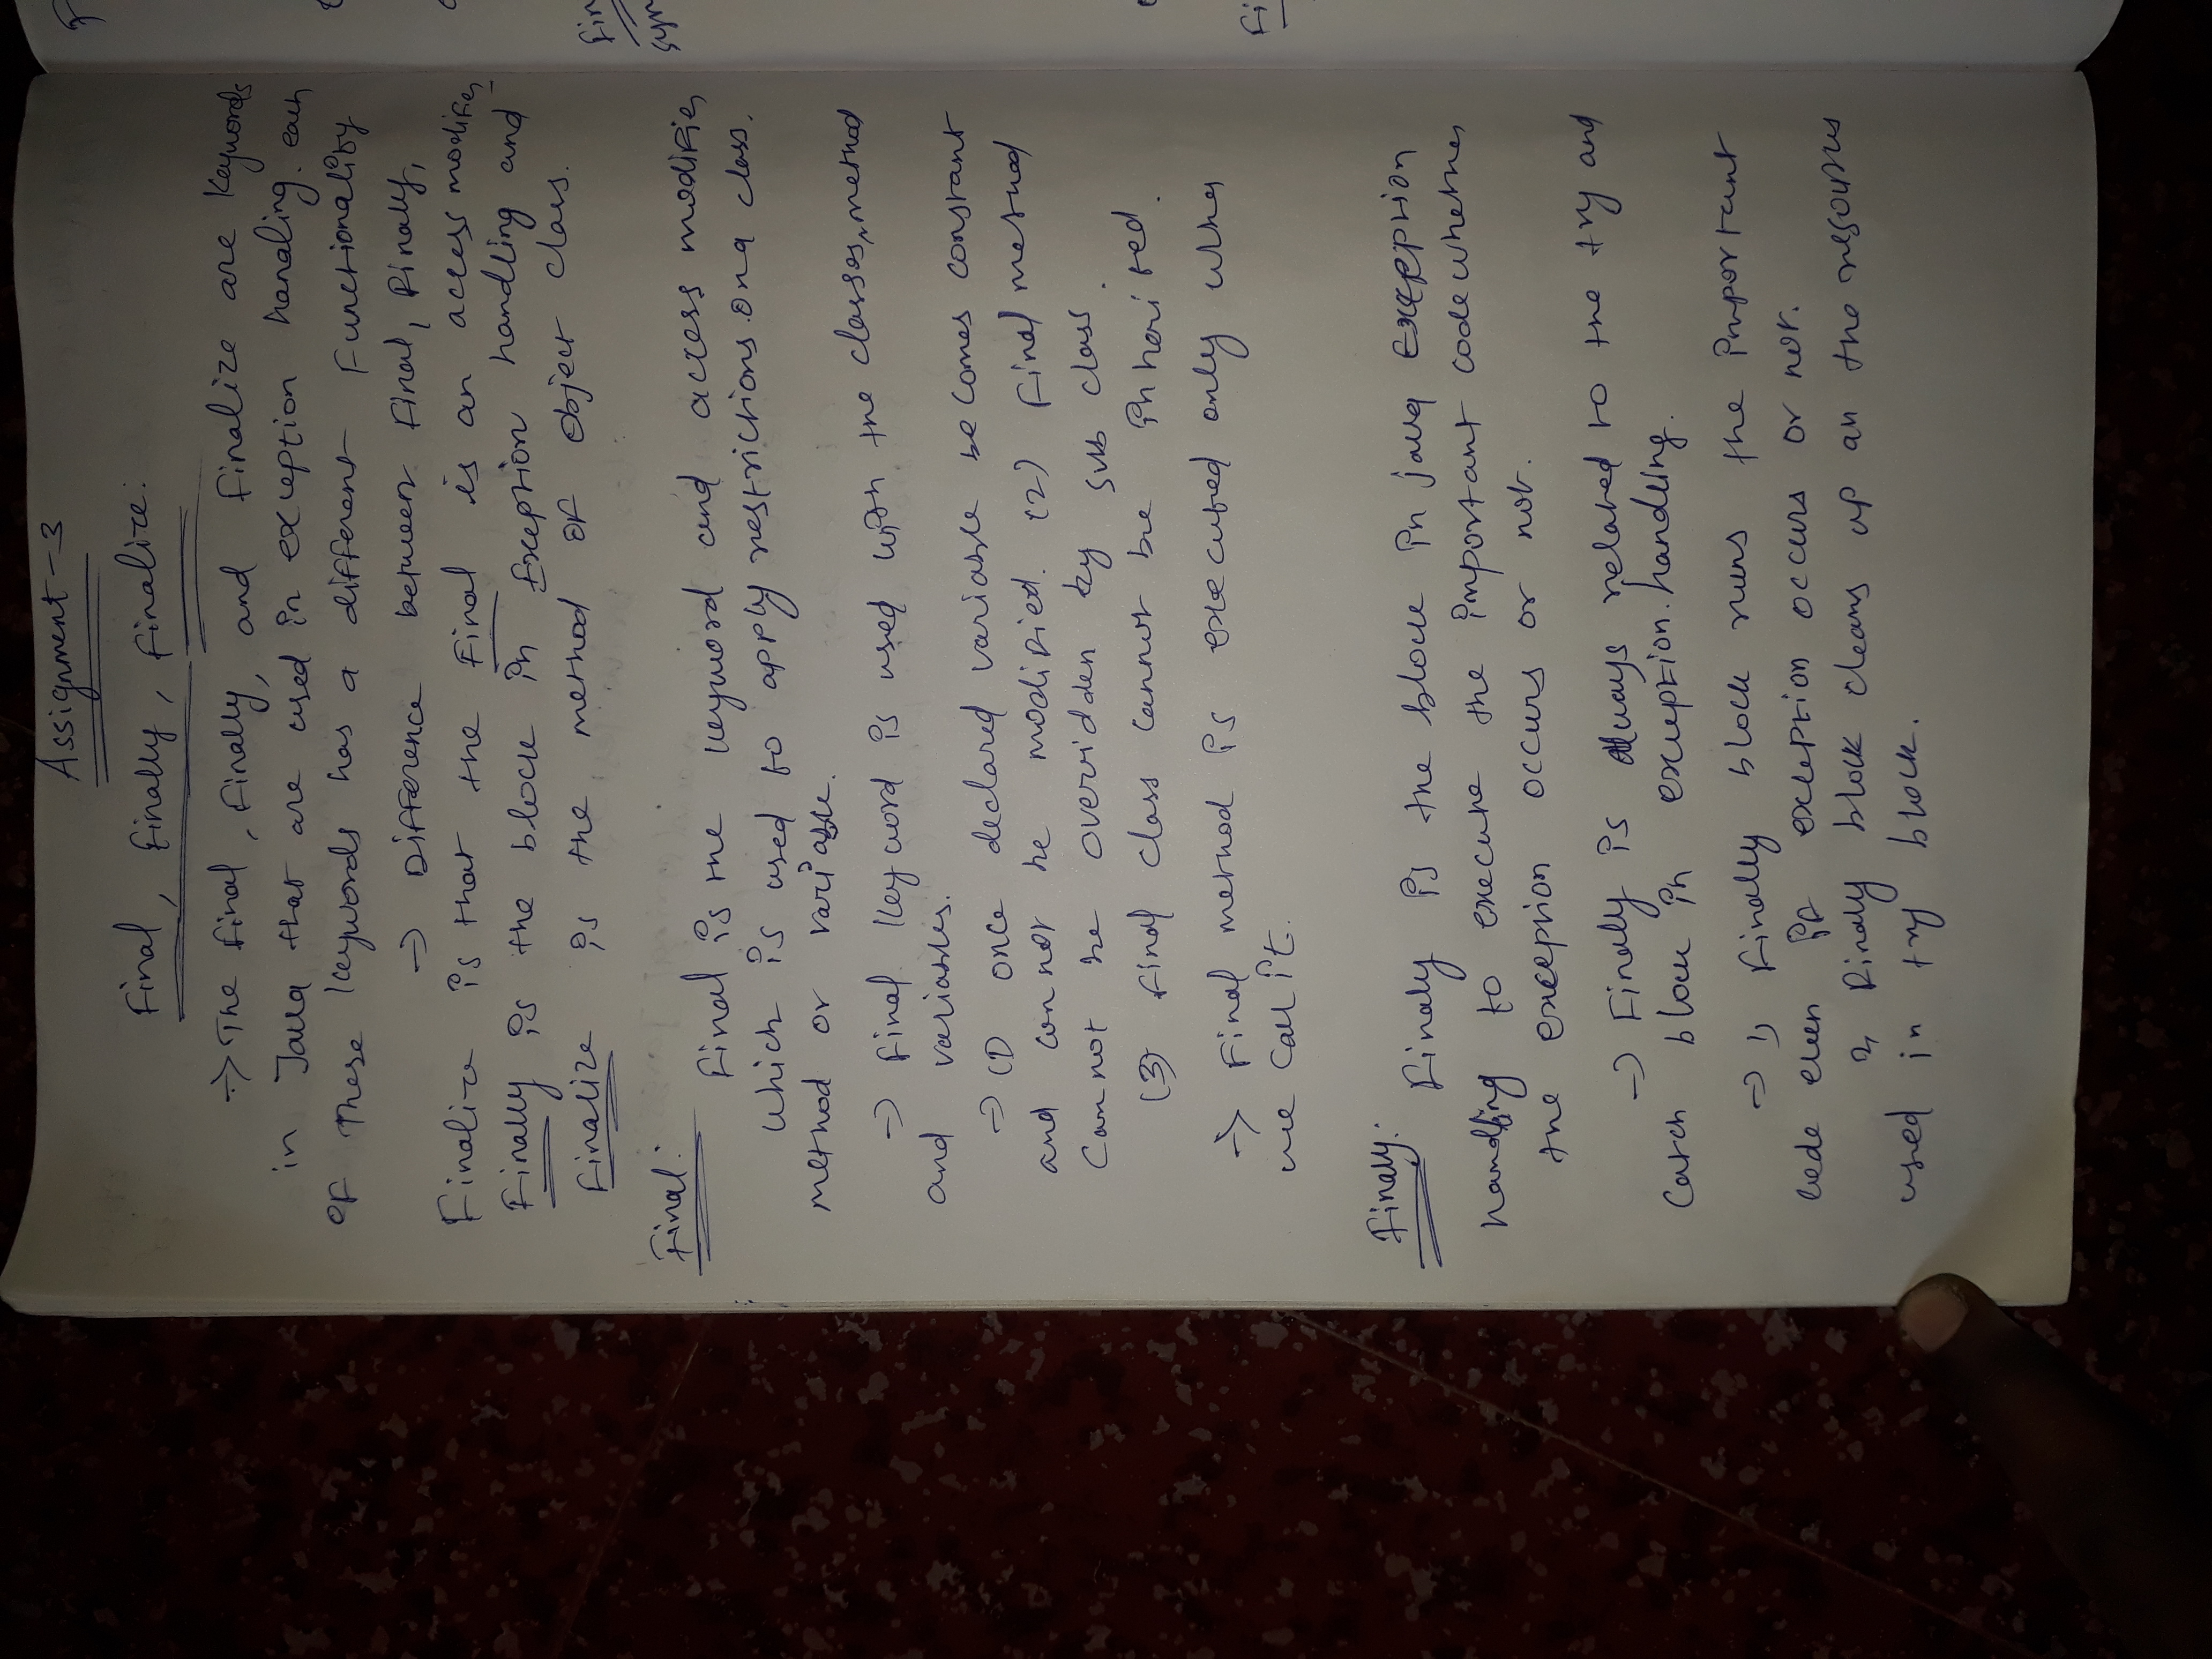 Assignment-3
Final, Finally, Finalize:
→ The final, finally, and finalize are keywords
in Java that are used in exception handling. each
of these keywords has a different functionality
→ Difference between final, finally,
Finalize is that the Final is an access modifier,
Finally is the block in Exception handling and
Finalize is the method of object class.
Final:
Final is the keyword and access modifier
which is used to apply restrictions on a class,
method or variable.
→ Final keyword is used with the classes, method
and variables.
→ (1) once declared variable becomes constant
and cannot be modified. (2) Final method
Cannot be overridden by sub class.
(3) final class cannot be inherited.
→ Final method is executed only when
we call it.
Finally:
Finally is the block in java Exception
handling to execute the important code whether
the exception occurs or not.
→ Finally is always related to the try and
catch block in exception handling.
→ 1, Finally block runs the important
code even if exception occurs or not.
2, Finally block cleans up all the resources
used in try block.
F
Fin
syn
Fi